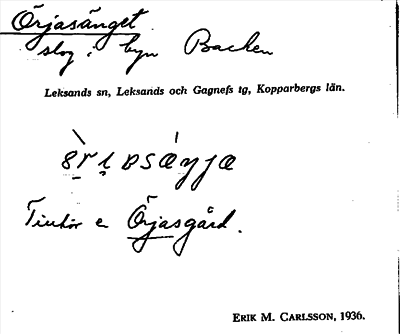 Örjasänget
slog i byn Backen
Leksands sn, Leksands och Gagnefs tg, Kopparbergs län.
Tillhör e Örjasgård.
ERIK M. CARLSSON, 1936.